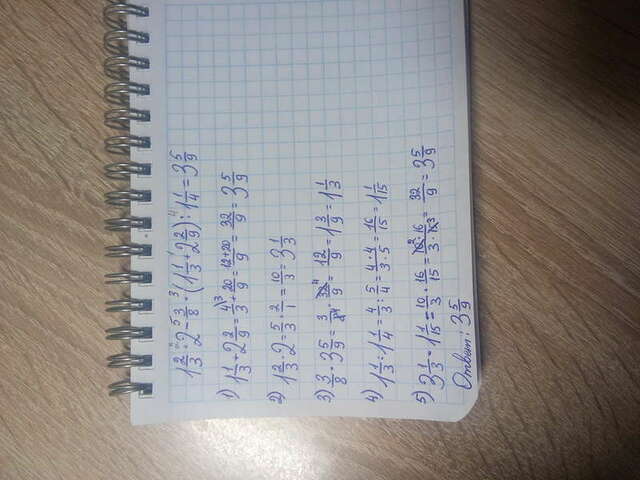 1 2/3 · 2 - 3/8 · (1 1/3 + 2 2/9) : 1 1/4 = 3 5/9
1) 1 1/3 + 2 2/9 = 4/3 + 20/9 = (12+20)/9 = 32/9 = 3 5/9
2) 1 2/3 · 2 = 5/3 · 2/1 = 10/3 = 3 1/3
3) 3/8 · 3 5/9 = 3/8 · 32/9 = 12/9 = 1 3/9 = 1 1/3
4) 1 1/3 : 1 1/4 = 4/3 : 5/4 = (4·4)/(3·5) = 16/15 = 1 1/15
5) 3 1/3 - 1 1/15 = 10/3 · 16/15 = (10·16)/(3·15) = 32/9 = 3 5/9
Ответ: 3 5/9